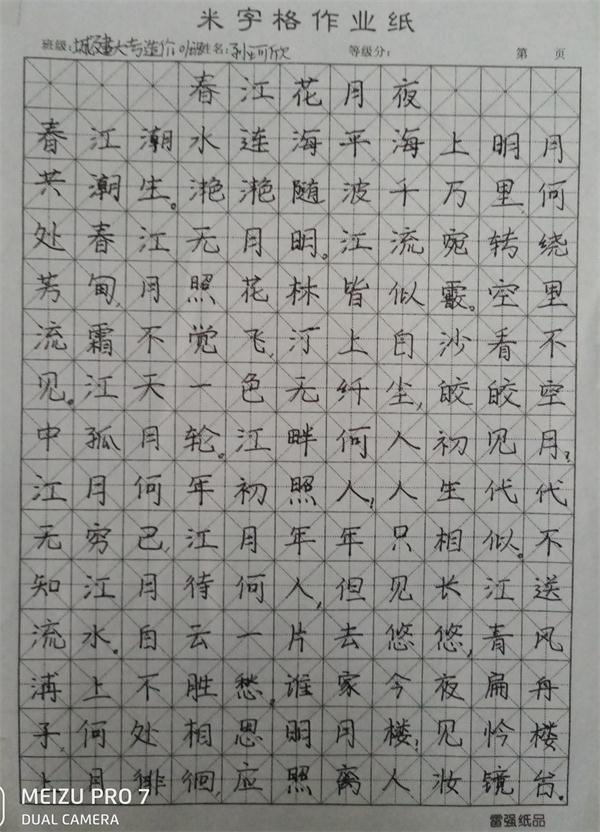 米字格作业纸
班级:城建大专造价 姓名:孙珂欣 等级分: 第 页
春江花月夜
春江潮水连海平海上明月
共潮生。滟滟随波千万里何
处春江无月明。江流宛转绕
芳甸,月照花林皆似霰。空里
流霜不觉飞,汀上白沙看不
见。江天一色无纤尘,皎皎空
中孤月轮。江畔何人初见月?
江月何年初照人?人生代代
无穷已,江月年年只相似。不
知江月待何人,但见长江送
流水。白云一片去悠悠,青风
浦上不胜愁。谁家今夜扁舟
子,何处相思明月楼?见怜楼
上月徘徊,应照离人妆镜台。
雷强纸品
MEIZU PRO 7
DUAL CAMERA